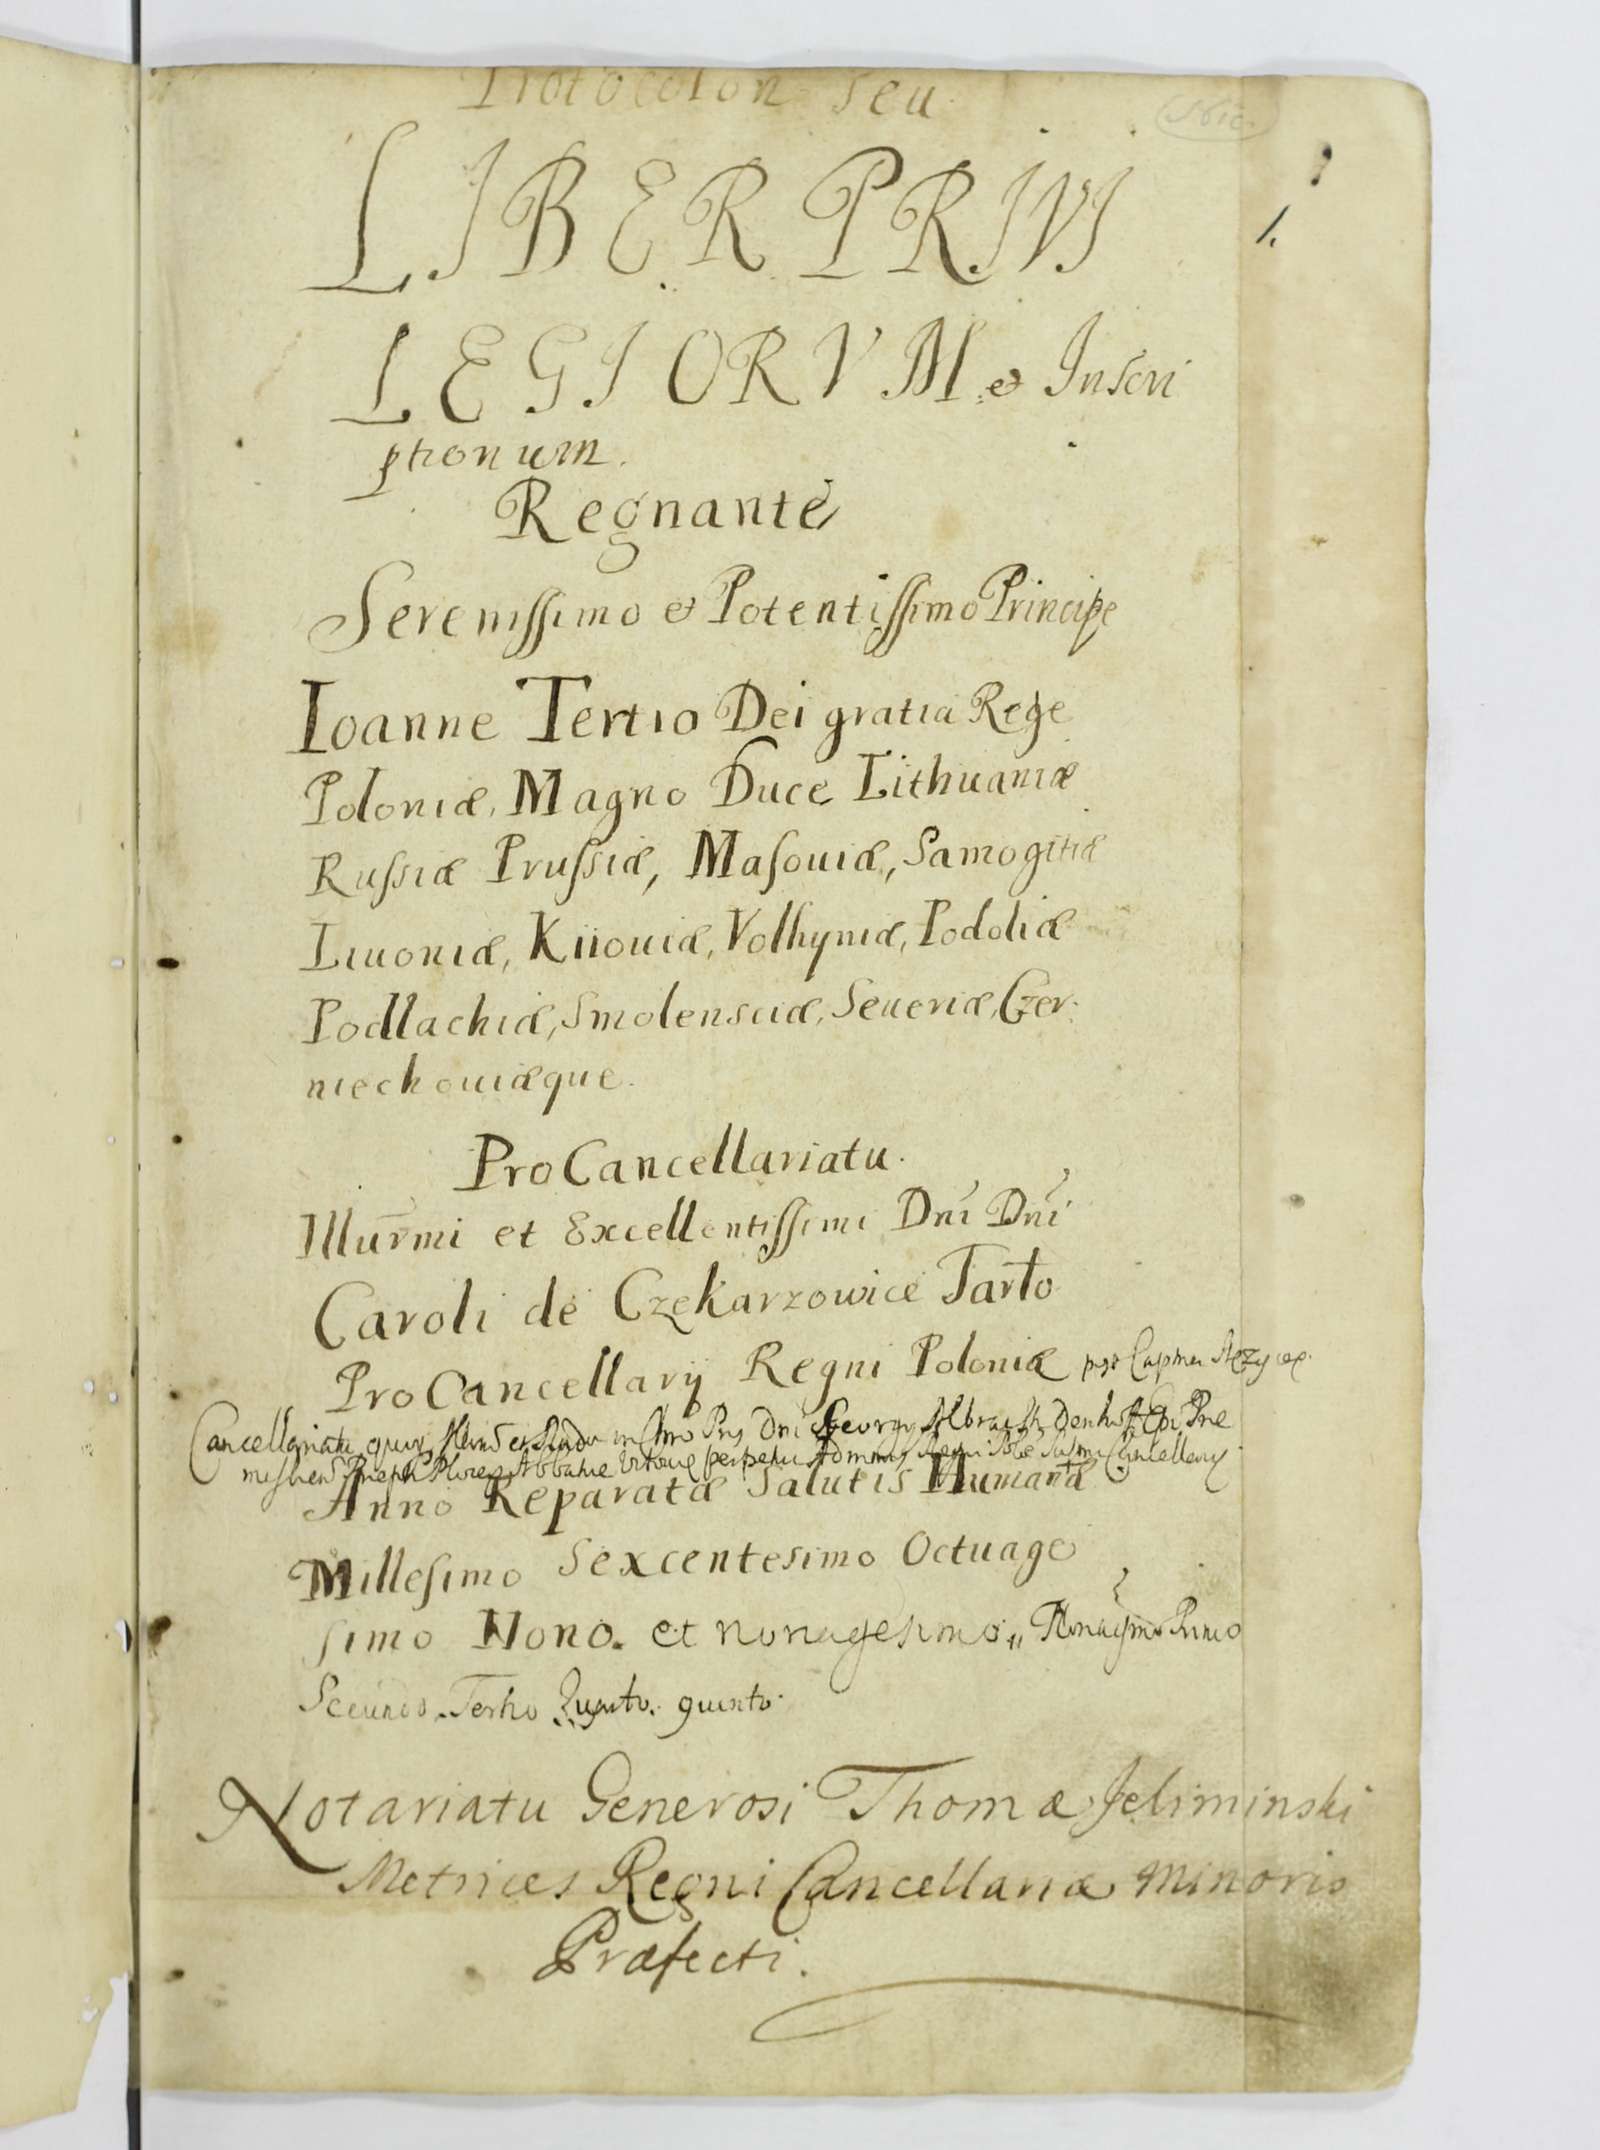 Protocolon seu
1.
LIBER PRIVI
LEGIORVM & Inscri
ptionum.
Regnante
Serenissimo & Potentissimo Principe
Ioanne Tertio Dei gratia Rege
Poloniæ, Magno Duce Lithuaniæ
Russiæ Prussiæ, Masouiæ, Samogitiæ
Liuoniæ, Kiiouiæ, Volhyniæ, Podoliæ
Podlachiæ, Smolensciæ, Seueriæ, Czer-
niechouiæque.
ProCancellariatu.
Illurmi et Excellentissimi Dni Dni
Caroli de Czekarzowice Tarło
ProCancellarij Regni Poloniæ
Cancellariatu Dni Georgij Cancellarij
Anno Reparatæ Salutis Humanæ
Millesimo Sexcentesimo Octuage
simo Nono. et nonagesimo, Primo
Secundo. Tertio Quarto. quinto.
Notariatu Generosi Thomæ Jeliminski
Metrices Regni Cancellariæ Minoris
Præfecti.